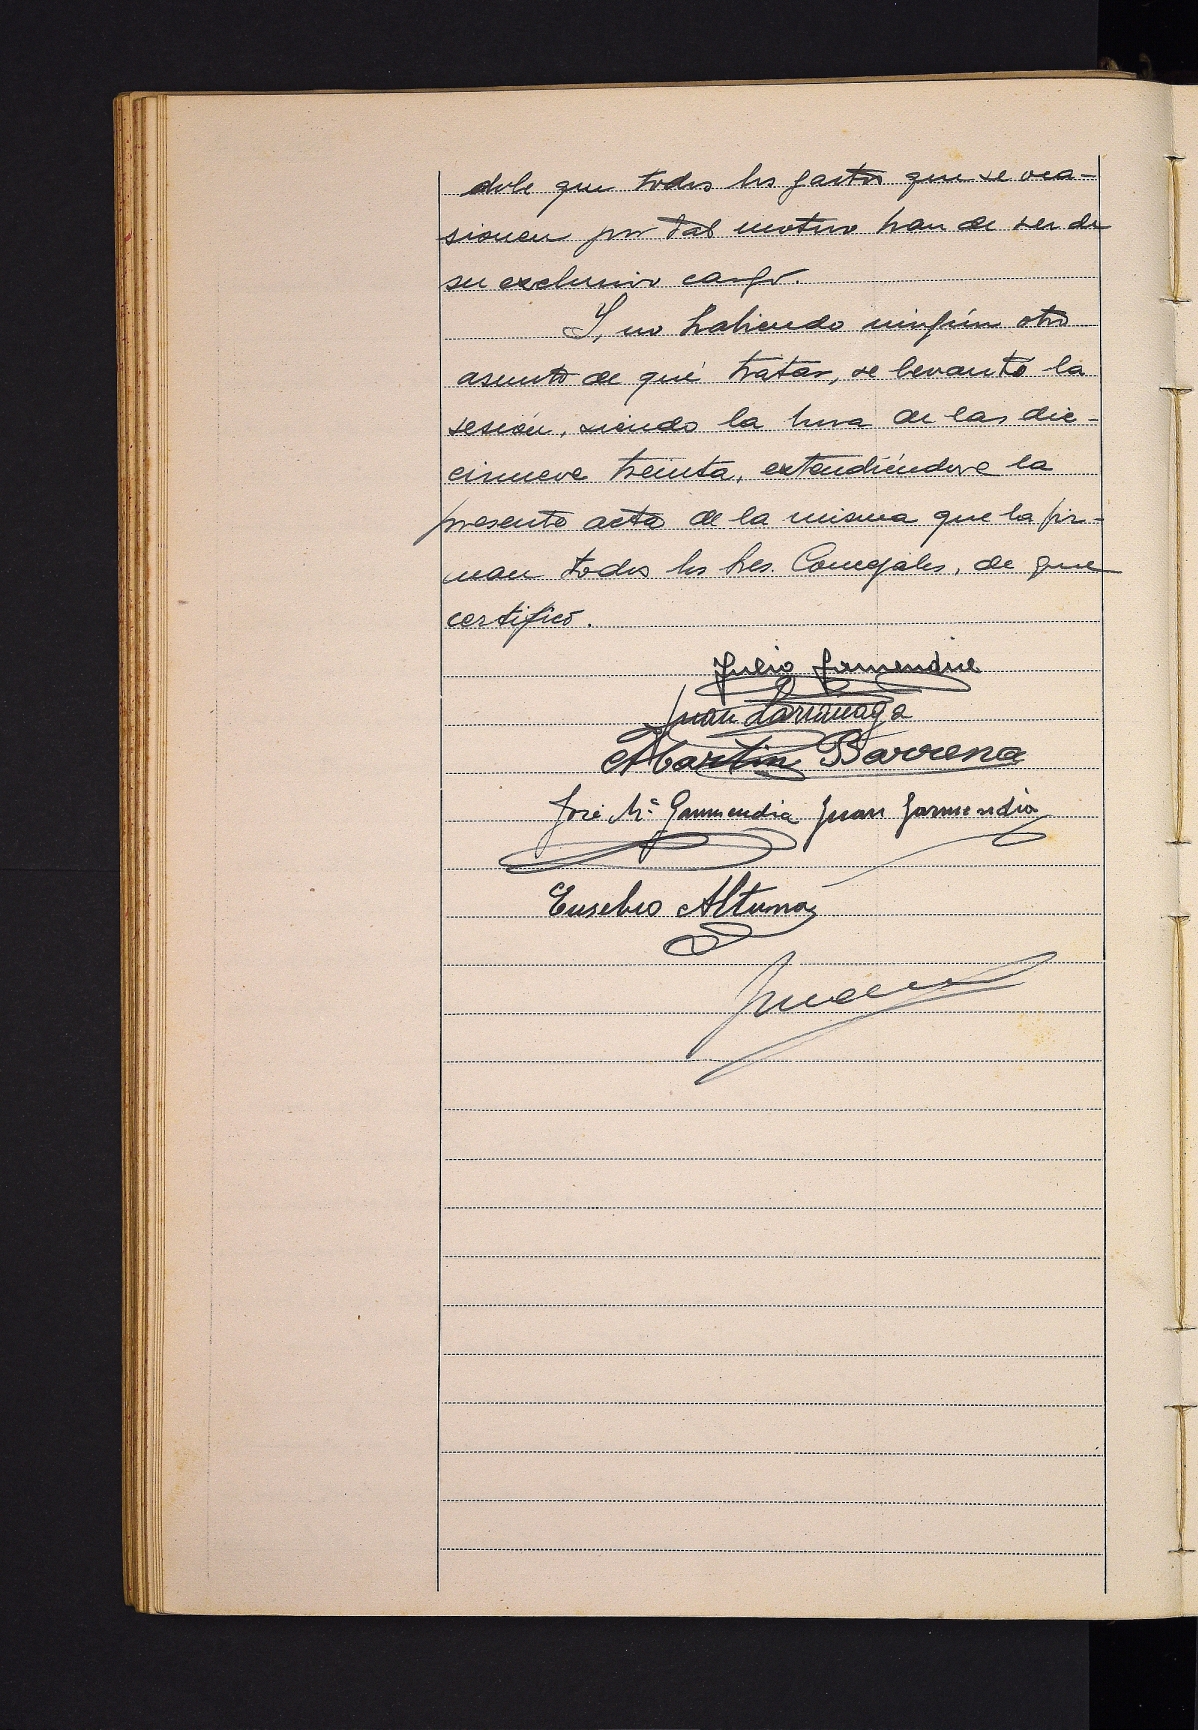 dole que todos los gastos que se oca-
sionen por tal motivo han de ser de
su exclusivo cargo.
Y, no habiendo ningún otro
asunto de qué tratar, se levantó la
sesión, siendo la hora de las die-
cinueve treinta, extendiéndose la
presente acta de la misma que la fir-
man todos los Sres. Concejales, de que
certifico.
Julio Garmendia
Juan Larrinaga
Martin Barrena
José Mª Garmendia Juan Garmendia
Eusebio Altuna